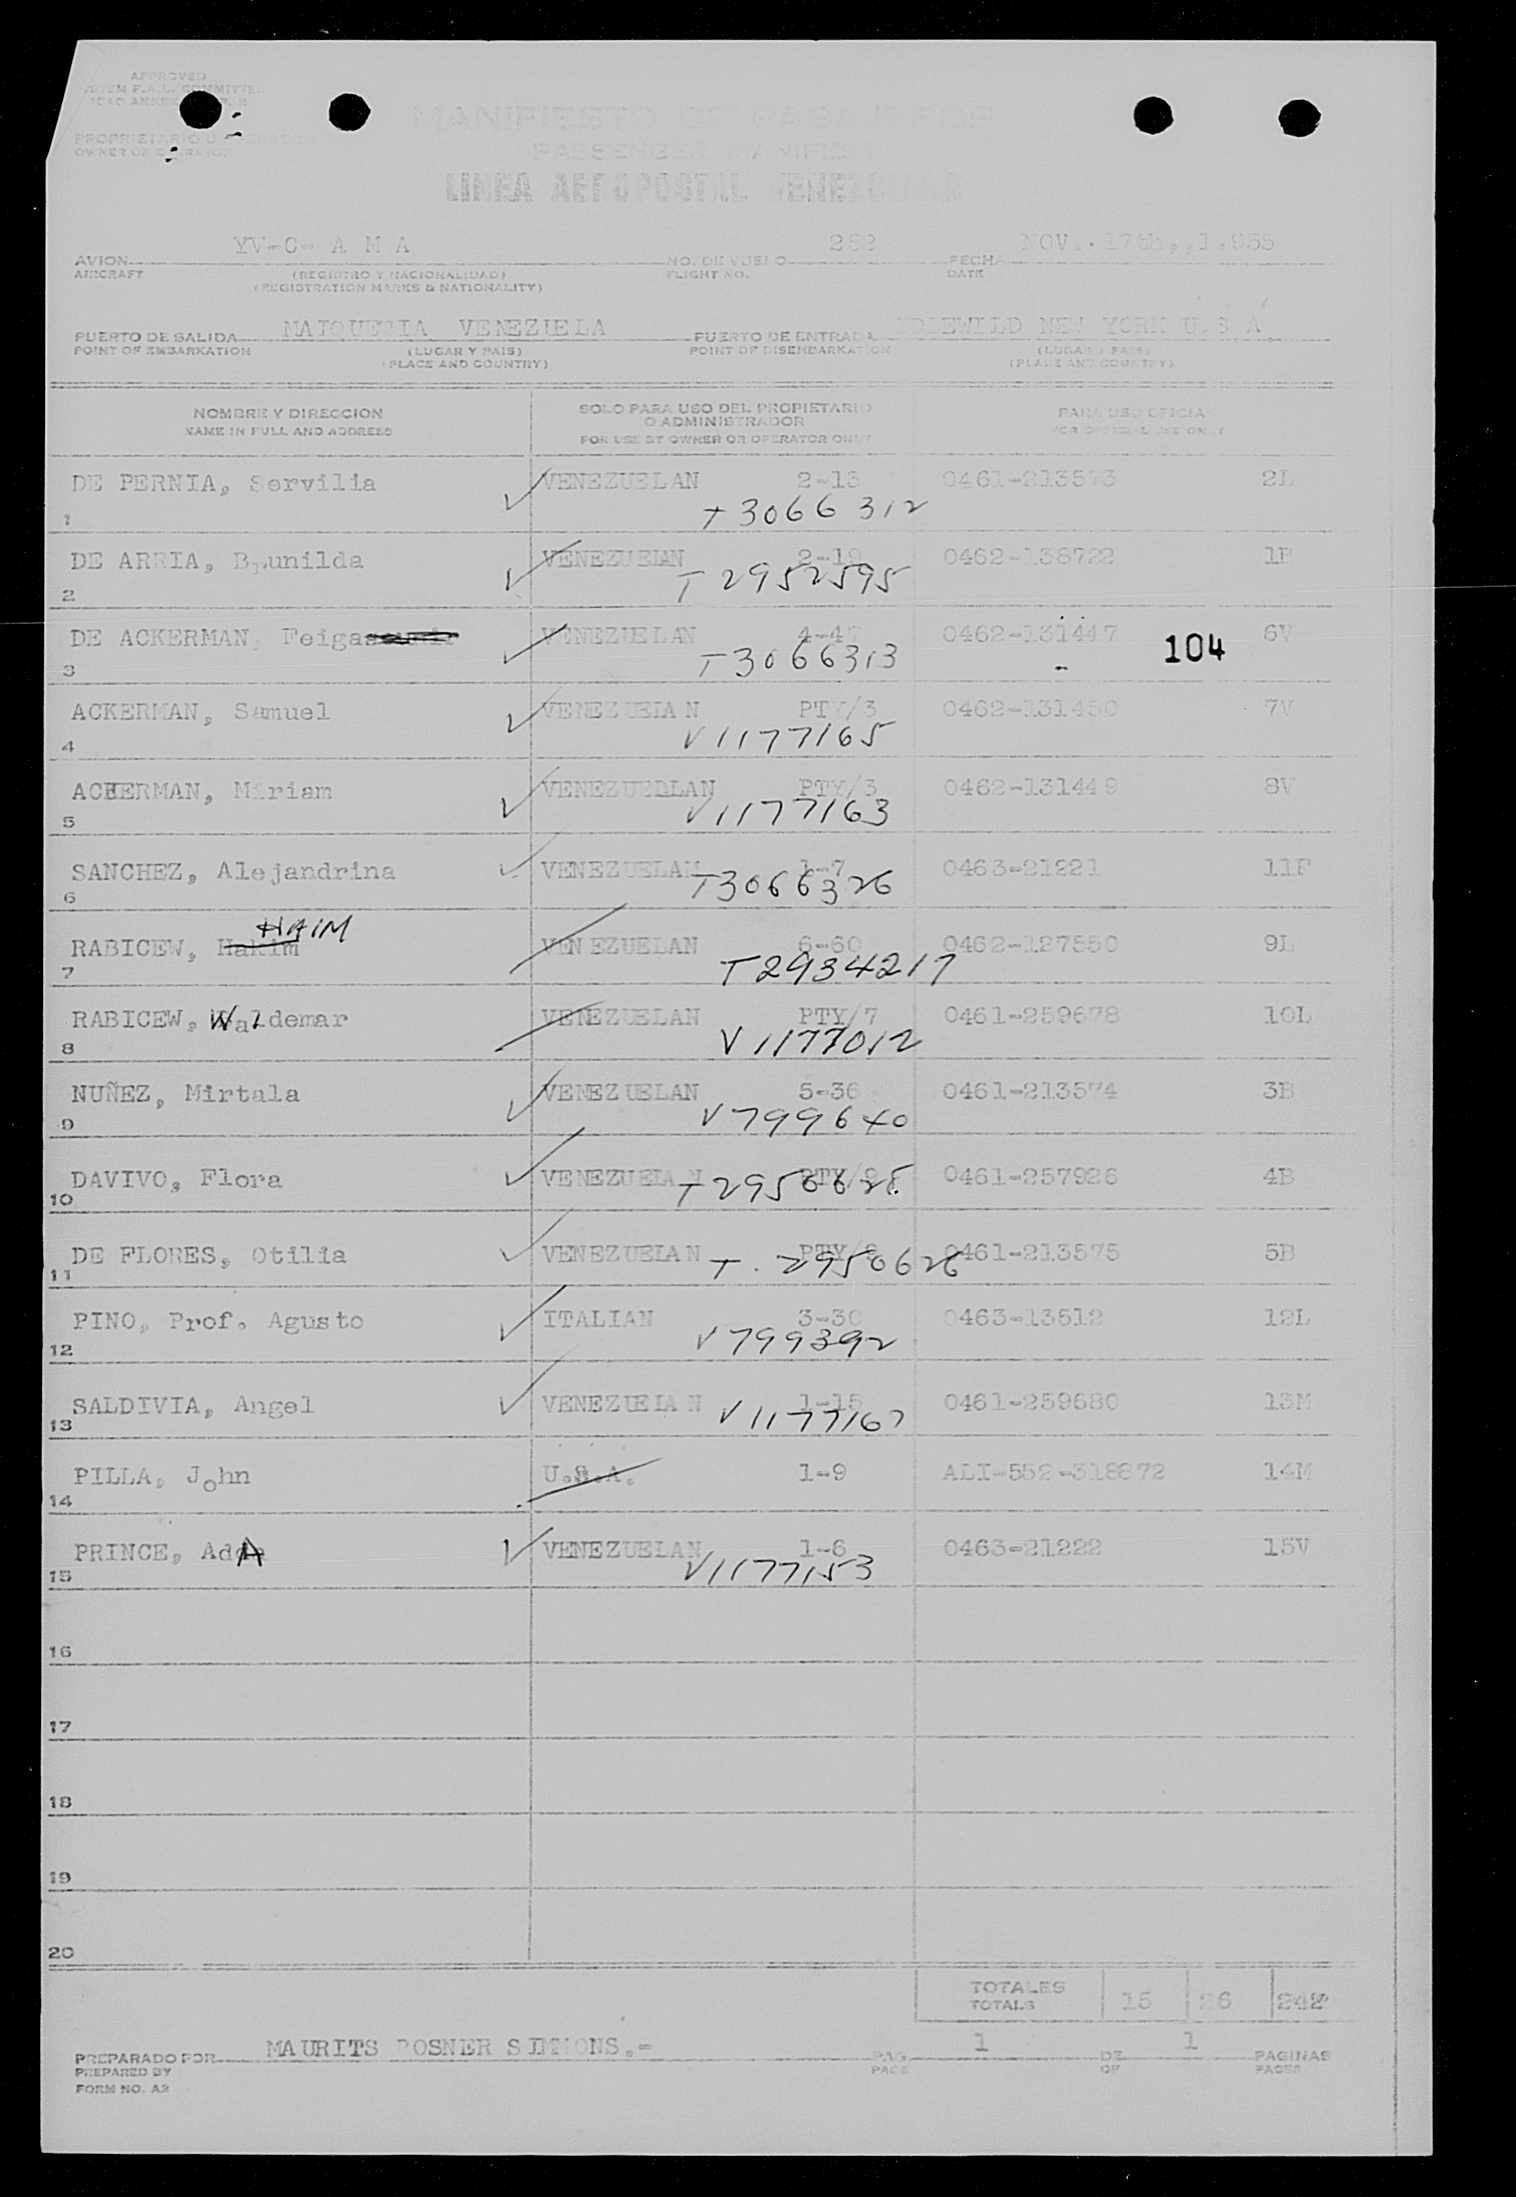 APPROVED
MANIFIESTO DE PASAJEROS
PROPRIETARIO O
OWNER OR OPERATOR
PASSENGER MANIFEST
LINEA AEROPOSTAL VENEZOLANA
YV-C- A M A 262 NOV. 17th,,1.955
AVION NO. DE VUELO FECHA
AIRCRAFT (REGISTRO Y NACIONALIDAD) FLIGHT NO. DATE
(REGISTRATION MARKS & NATIONALITY)
MAIQUETIA VENEZUELA IDLEWILD NEW YORK U.S.A
PUERTO DE SALIDA PUERTO DE ENTRADA
POINT OF EMBARKATION (LUGAR Y PAIS) POINT OF DISEMBARKATION (LUGAR Y PAIS)
(PLACE AND COUNTRY) (PLACE AND COUNTRY)
NOMBRE Y DIRECCION SOLO PARA USO DEL PROPIETARIO PARA USO OFICIAL
NAME IN FULL AND ADDRESS O ADMINISTRADOR FOR OFFICIAL USE ONLY
FOR USE BY OWNER OR OPERATOR ONLY
DE PERNIA, Servilia VENEZUELAN 2-18 0461-213573 2L
1 T3066312
DE ARRIA, Brunilda VENEZUELAN 2-19 0462-138722 1F
2 T2952595
DE ACKERMAN, Feiga VENEZUELAN 4-47 0462-131447 104 6V
3 T3066313
ACKERMAN, Samuel VENEZUELAN PTY/3 0462-131450 7V
4 V1177165
ACKERMAN, Miriam VENEZUEDLAN PTY/3 0462-131449 8V
5 V1177163
SANCHEZ, Alejandrina VENEZUELAN 1-7 0463-21221 11F
6 T3066326
HAIM
RABICEW, Hakim VENEZUELAN 6-60 0462-127550 9L
7 T2934217
RABICEW, Waldemar VENEZUELAN PTY/7 0461-259678 10L
8 V1177012
NUÑEZ, Mirtala VENEZUELAN 5-36 0461-213574 3B
9 V799640
DAVIVO, Flora VENEZUELAN PTY/9 0461-257926 4B
10 T2950628
DE FLORES, Otilia VENEZUELAN PTY/9 0461-213575 5B
11 T. 2950626
PINO, Prof. Agusto ITALIAN 3-30 0463-13512 12L
12 V799392
SALDIVIA, Angel VENEZUELAN 1-15 0461-259680 13M
13 V1177167
PILLA, John U.S.A. 1-9 ALI-552-318872 14M
14
PRINCE, AdA VENEZUELAN 1-6 0463-21222 15V
15 V1177153
16
17
18
19
20
TOTALES 15 26 242
TOTALS
MAURITS POSNER SIMMONS.- 1 1
PREPARADO POR PAG. DE PAGINAS
PREPARED BY PAGE OF PAGES
FORM NO. A2